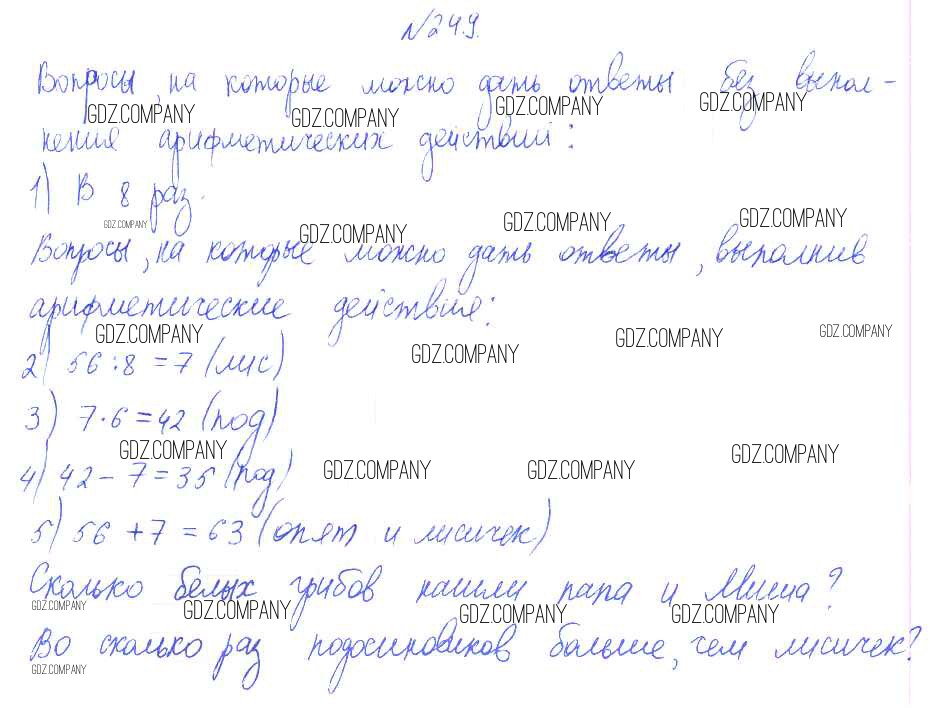 №249.
Вопросы, на которые можно дать ответы без выпол-
GDZ.COMPANY GDZ.COMPANY GDZ.COMPANY GDZ.COMPANY
нения арифметических действий:
1) В 8 раз.
GDZ.COMPANY GDZ.COMPANY GDZ.COMPANY GDZ.COMPANY
Вопросы, на которые можно дать ответы, выполнив
арифметические действия:
GDZ.COMPANY GDZ.COMPANY GDZ.COMPANY GDZ.COMPANY
2) 56 : 8 = 7 (лис)
3) 7 · 6 = 42 (под)
GDZ.COMPANY GDZ.COMPANY GDZ.COMPANY GDZ.COMPANY
4) 42 - 7 = 35 (под)
5) 56 + 7 = 63 (опят и лисичек)
Сколько белых грибов нашли папа и Миша?
GDZ.COMPANY GDZ.COMPANY GDZ.COMPANY GDZ.COMPANY
Во сколько раз подосиновиков больше, чем лисичек?
GDZ.COMPANY